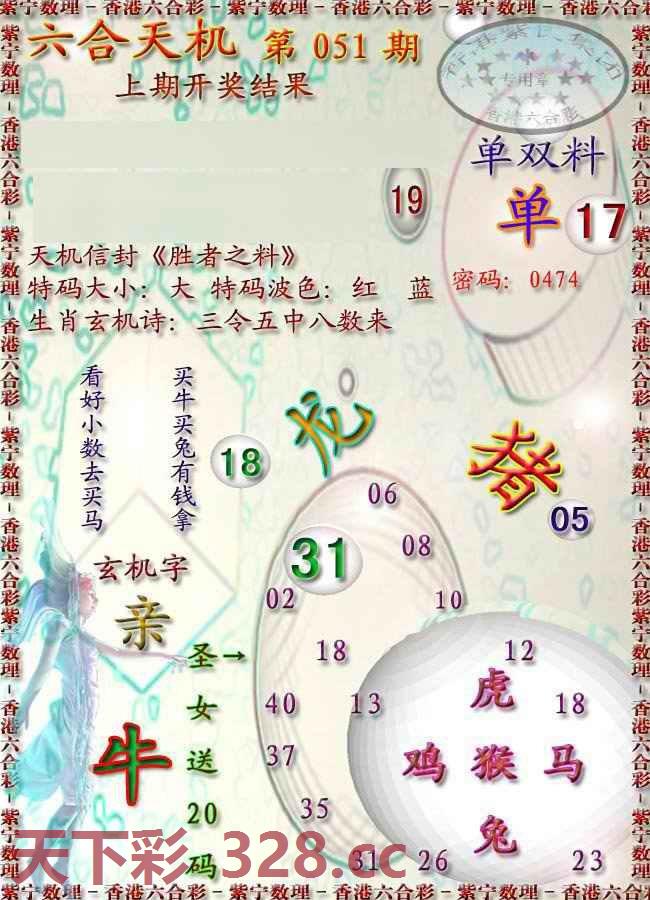 紫宁数理－香港六合彩－紫宁数理－香港六合彩－紫宁数理－香港六合彩
六合天机 第 051 期
上期开奖结果
专用章
香港六合彩
单双料
单 17
19
天机信封《胜者之料》
特码大小：大 特码波色：红 蓝
密码：0474
生肖玄机诗：三令五中八数来
买牛买兔有钱拿
看好小数去买马
龙
猪
18
05
玄机字
亲
牛
31
圣女送20码→
06
08
02
10
18
12
40
13
18
37
35
31
26
23
虎
鸡 猴 马
兔
天下彩.328.cc
紫宁数理－香港六合彩－紫宁数理－香港六合彩－紫宁数理－香港六合彩